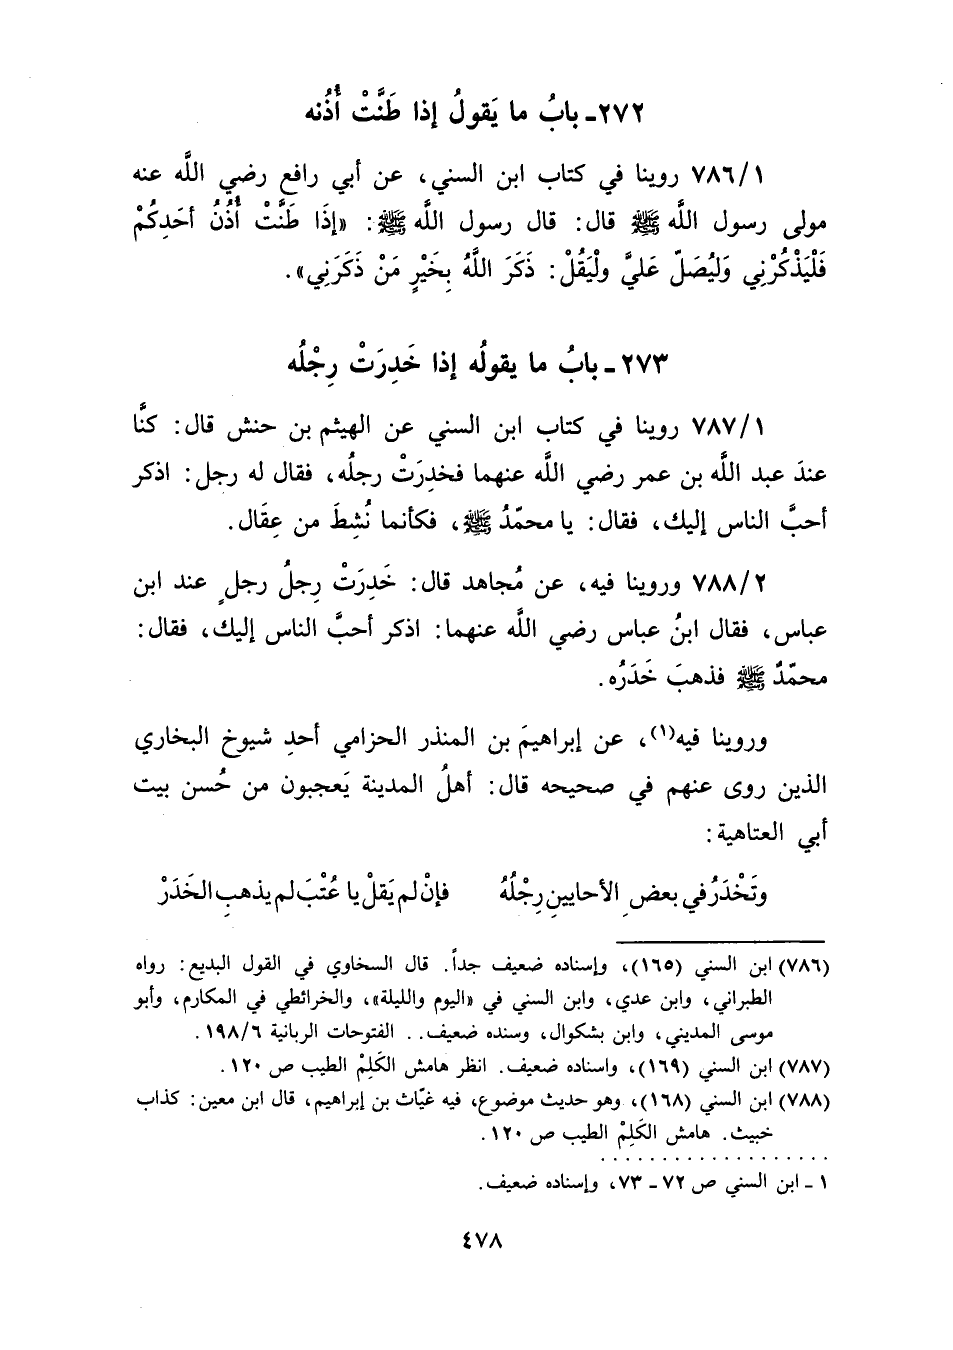 ٢٧٢ـ بابُ ما يَقولُ إذا طَنَّتْ أُذُنه
٧٨٦/١ روينا في كتاب ابن السني، عن أبي رافع رضي اللَّه عنه
مولى رسول اللَّه ﷺ قال: قال رسول اللَّه ﷺ: «إذَا طَنَّتْ أُذُنُ أحَدِكُمْ
فَلْيَذْكُرْنِي وَليُصَلّ عَليَّ ولْيَقُلْ: ذَكَرَ اللَّهُ بِخَيْرٍ مَنْ ذَكَرَنِي».
٢٧٣ـ بابُ ما يقولُه إذا خَدِرَتْ رِجْلُه
٧٨٧/١ روينا في كتاب ابن السني عن الهيثم بن حنش قال: كنَّا
عندَ عبد اللَّه بن عمر رضي اللَّه عنهما فخدِرَتْ رجلُه، فقال له رجل: اذكر
أحبَّ الناس إليك، فقال: يا محمّدُ ﷺ، فكأنما نُشِطَ من عِقَال.
٧٨٨/٢ وروينا فيه، عن مُجاهد قال: خَدِرَتْ رِجلُ رجلٍ عند ابن
عباس، فقال ابنُ عباس رضي اللَّه عنهما: اذكر أحبَّ الناس إليك، فقال:
محمّدٌ ﷺ فذهبَ خَدَرُه.
وروينا فيه(١)، عن إبراهيمَ بن المنذر الحزامي أحدِ شيوخ البخاري
الذين روى عنهم في صحيحه قال: أهلُ المدينة يَعجبون من حُسن بيت
أبي العتاهية:
وتَخْدَرُ في بعضِ الأحايينِ رِجْلُهُ فإنْ لم يَقلْ يا عُتْبَ لم يذهبِ الخَدَرْ
(٧٨٦) ابن السني (١٦٥)، وإسناده ضعيف جداً. قال السخاوي في القول البديع: رواه
الطبراني، وابن عدي، وابن السني في «اليوم والليلة»، والخرائطي في المكارم، وأبو
موسى المديني، وابن بشكوال، وسنده ضعيف.. الفتوحات الربانية ١٩٨/٦.
(٧٨٧) ابن السني (١٦٩)، واسناده ضعيف. انظر هامش الكَلِمْ الطيب ص ١٢٠.
(٧٨٨) ابن السني (١٦٨)، وهو حديث موضوع، فيه غيّاث بن إبراهيم، قال ابن معين: كذاب
خبيث. هامش الكَلِمْ الطيب ص ١٢٠.
١ ـ ابن السني ص ٧٢ ـ ٧٣، وإسناده ضعيف.
٤٧٨